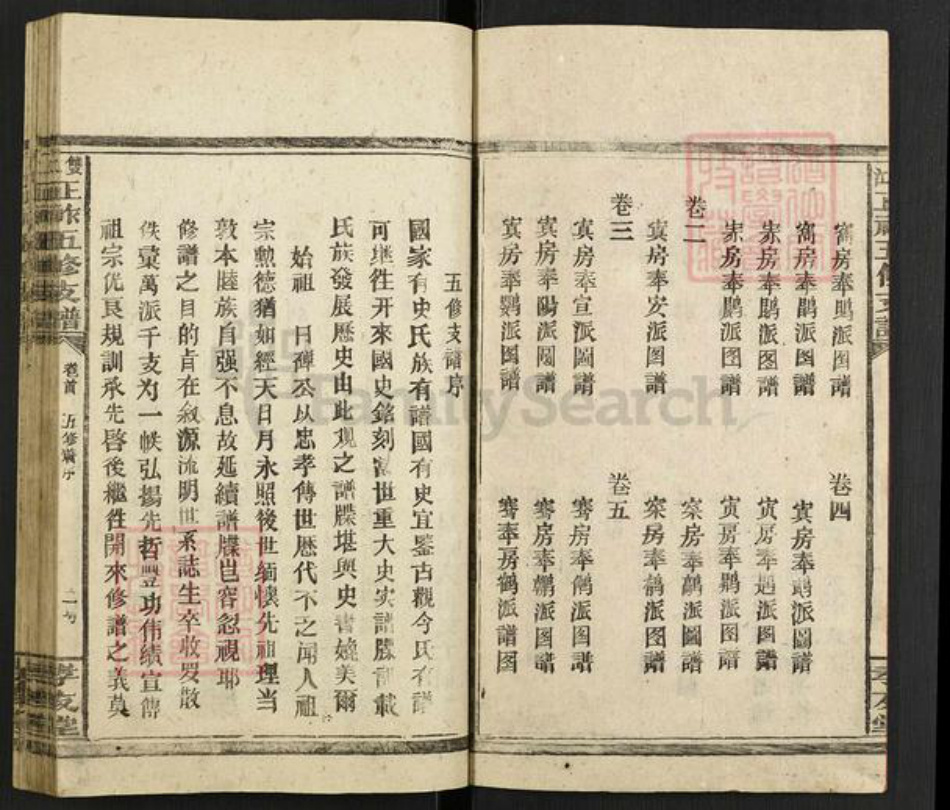 房奉鵰派图譜
房奉鵲派圖譜
房奉鵬派图譜
房奉鵬派图譜
卷二
房奉安派圖譜
卷三
房奉宣派圖譜
房奉陽派圖譜
房奉鸚派图譜
卷四
房奉派圖譜
房奉派图譜
房奉派图譜
房奉派圖譜
房奉派图譜
卷五
騫房奉派图譜
騫房奉派图譜
騫奉房鶴派譜图
五修支譜序
國家有史氏族有譜國有史宜鑒古觀今氏有譜
可継徃开來國史銘刻當世重大史实譜牒記載
氏族發展歷史由此观之譜牒堪與史書媲美爾
始祖 日磾公以忠孝傳世歷代不乏聞人祖
宗勲德猶如經天日月永照後世緬懷先祖理当
敦本睦族自强不息故延續譜牒岂容忽視耶
修譜之目的肯在敘源流明世系誌生卒收罗散
佚彙萬派千支为一帙弘揚先哲豐功伟績宣傳
祖宗优良規訓承先啓後繼徃開來修譜之義莫
雙江祚五修支譜
卷首
五修譜序
孝友堂